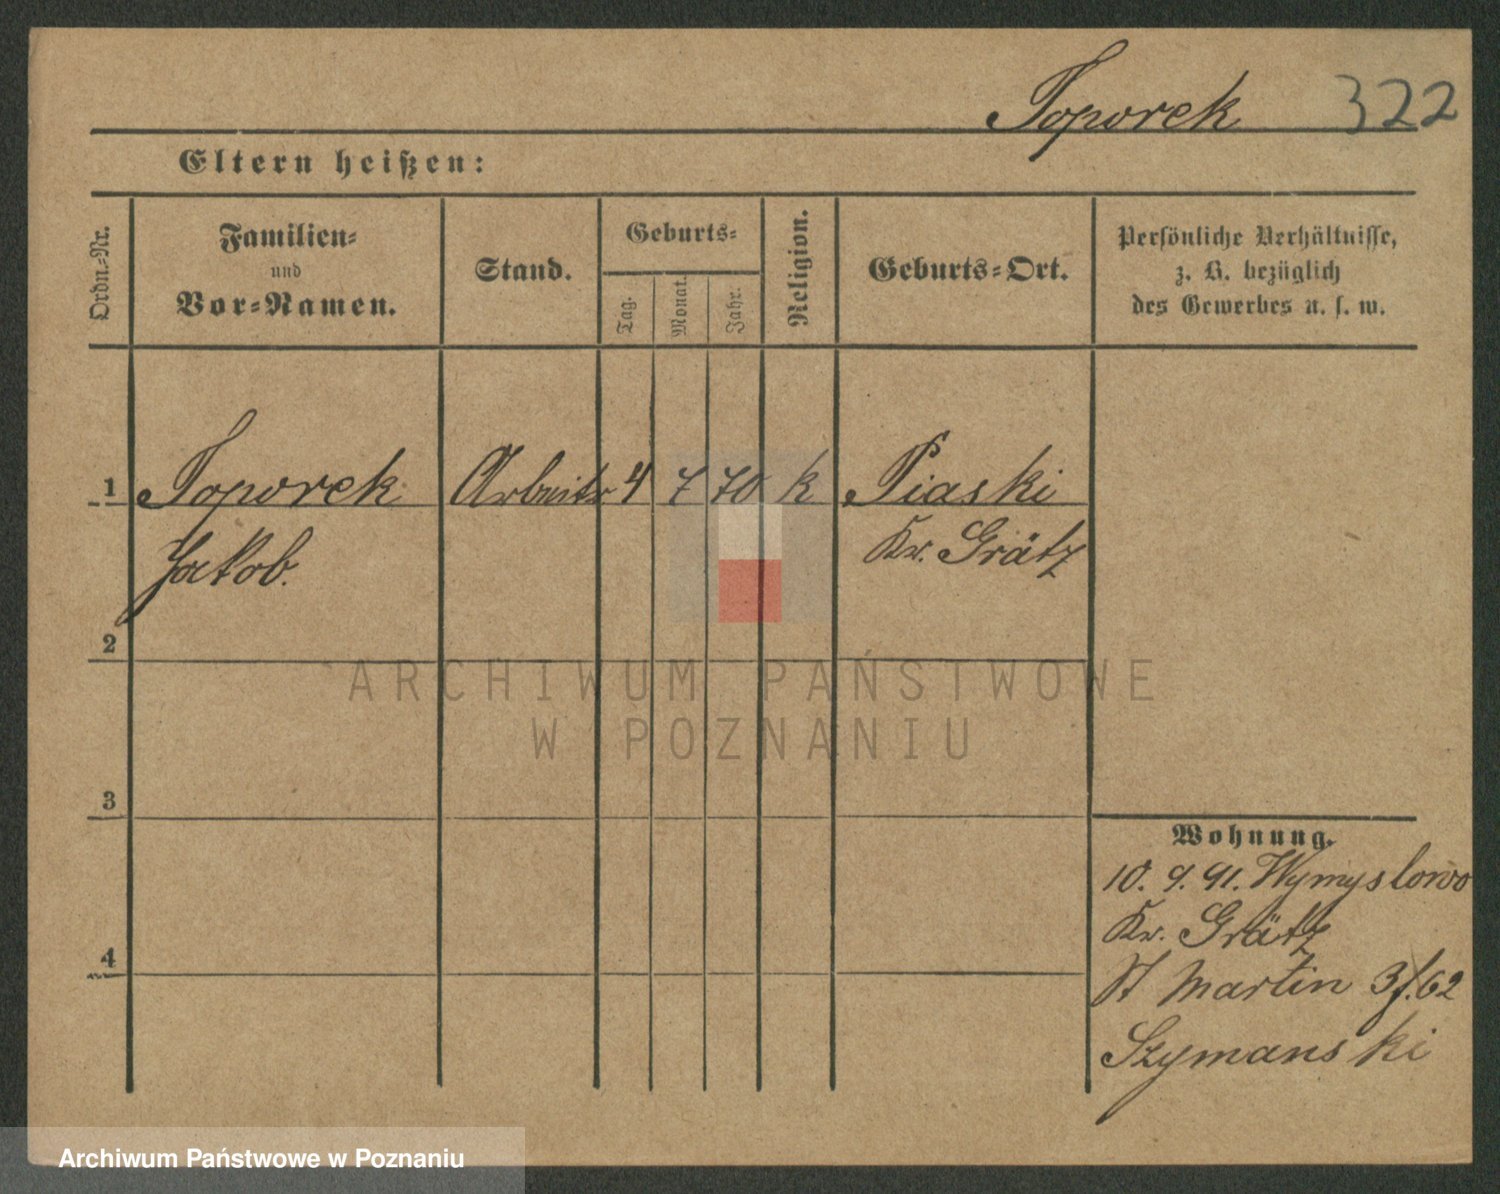 Toporek 322
Eltern heißen:
Ordn.-Nr.
Familien-
und
Vor-Namen.
Stand.
Geburts-
Tag.
Monat.
Jahr.
Religion.
Geburts-Ort.
Persönliche Verhältnisse,
z. B. bezüglich
des Gewerbes u. s. w.
1 Toporek Arbeiter 4 7 70 k Piaski
Jakob. Kr. Grätz
2
3
4
Wohnung.
10. 9. 91. Wymyslowo
Kr. Grätz
St Martin 62
Szymanski
ARCHIWUM PAŃSTWOWE
W POZNANIU
Archiwum Państwowe w Poznaniu